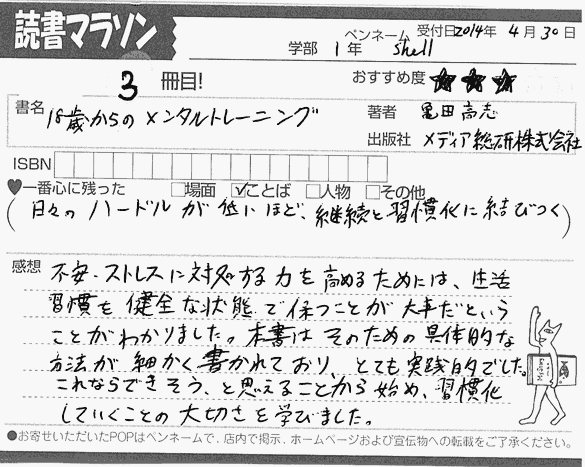 読書マラソン
ペンネーム 受付日2014年 4月 30日
学部 1年 shell
3 冊目!
おすすめ度 ★ ★ ★
書名 18歳からのメンタルトレーニング
著者 亀田高志
出版社 メディア総研株式会社
ISBN
♥一番心に残った □場面 ☑ことば □人物 □その他
(日々のハードルが低いほど、継続と習慣化に結びつく)
感想 不安・ストレスに対処する力を高めるためには、生活
習慣を健全な状態で保つことが大事だという
ことがわかりました。本書はそのための具体的な
方法が細かく書かれており、とても実践的でした。
これならできそう、と思えることから始め、習慣化
していくことの大切さを学びました。
●お寄せいただいたPOPはペンネームで、店内で掲示、ホームページおよび宣伝物への転載をご了承ください。